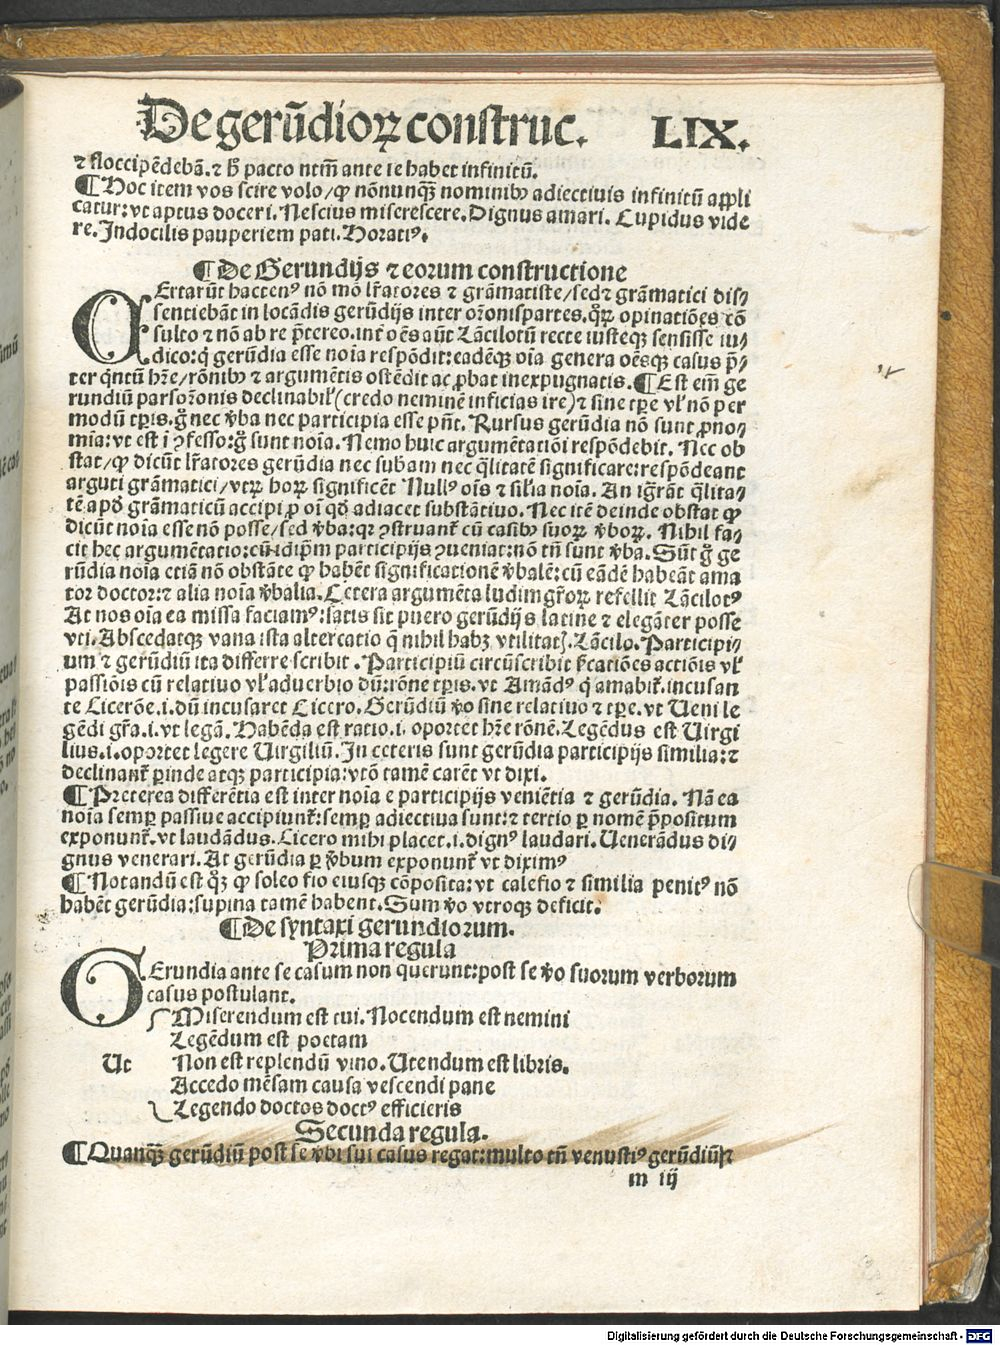 De gerūdioꝝ construc. LIX.
⁊ floccipēdebā. ⁊ h̄ pacto ntm̄ ante se habet infinitū.
¶Hoc item vos scire volo/ꝙ nōnunqꝫ nominibꝰ adiectiuis infinitū appli
catur: vt aptus doceri. Nescius miserescere. Dignus amari. Cupidus vide
re. Indocilis pauperiem pati. Horatiꝰ.
¶De Gerundijs ⁊ eorum constructione
CErtarūt hactenꝰ nō mō lr̄atores ⁊ grāmatiste/sedꝫ grāmatici dis/
sentiebāt in locādis gerūdijs inter or̄onis partes. qꝝ opinatiōes cō
sulto ⁊ nō ab re p̄tereo. int̄ oēs aūt Lācilotū recte iusteqꝫ sensisse iu/
dico: q̇ gerūdia esse noīa respōdit: eadēqꝫ oīa genera oēsqꝫ casus p̄/
ter qntū hr̄e/rōnibꝰ ⁊ argumētis ostēdit ac ꝓbat inexpugnatis. ¶Est em̄ ge
rundiū pars or̄onis declinabil̕ (credo neminē inficias ire) ⁊ sine tꝑe vl̕ nō per
modū tꝑis. g̊ nec v̄ba nec participia esse pn̄t. Rursus gerūdia nō sunt ꝓno
mīa: vt est ī ꝯfesso: g̊ sunt noīa. Nemo huic argumētatiōi respōdebit. Nec ob
stat/ꝙ dicūt lr̄atores gerūdia nec sub̄am nec q̄litatē significare: respōdeant
arguti grāmatici/vtꝝ hoꝝ significēt Nullꝰ oīs ⁊ sil̕ia noīa. An igr̄āt q̄lita/
tē apd̕ grāmaticū accipi ꝓ oī qd̕ adiacet substātiuo. Nec itē deinde obstat ꝙ
dicūt noīa esse nō posse/sed v̄ba: qꝛ ꝯstruant̄ cū casibꝰ suoꝝ v̄boꝝ. Nihil fa/
cit hec argumētatio: cū idip̄m participijs ꝯueniat: nō tn̄ sunt v̄ba. Sūt g̊ ge
rūdia noīa etiā nō obstāte ꝙ habēt significationē v̄balē: cū eādē habeāt ama
tor doctor: ⁊ alia noīa v̄balia. Cetera argumēta ludimgr̄oꝝ refellit Lācilotꝰ
At nos oīa ea missa faciamꝰ: satis sit puero gerūdijs latine ⁊ elegāter posse
vti. Abscedatqꝫ vana ista altercatio q̄ nihil habꝫ vtilitatꝭ. Lācilo. Participi/
um ⁊ gerūdiū ita differre scribit. Participiū circūscribit sc̄atiōes actiōis vl̕
passiōis cū relatiuo vl̕ aduerbio dū: rōne tꝑis. vt Amādꝰ q̇ amabit̄. incusan
te Cicerōe. i. dū incusaret Cicero. Gerūdiū v̊o sine relatiuo ⁊ tꝑe. vt Ueni le
gēdi gr̄a. i. vt legā. Habēda est ratio. i. oportet hr̄e rōnē. Legēdus est Uirgi
lius. i. oportet legere Uirgiliū. In ceteris sunt gerūdia participijs similia: ⁊
declinant̄ ꝑinde atqꝫ participia: vtō tamē carēt vt dixi.
¶Preterea differētia est inter noīa e participijs veniētia ⁊ gerūdia. Nā ea
noīa semꝑ passiue accipiunt̄: semꝑ adiectiua sunt: ⁊ tertio ꝑ nomē p̄positum
exponunt̄. vt laudādus. Cicero mihi placet. i. dignꝰ laudari. Uenerādus di/
gnus venerari. At gerūdia ꝑ v̄bum exponunt̄ vt diximꝰ
¶Notandū est qꝫ ꝙ soleo fio eiusqꝫ cōposita: vt calefio ⁊ similia penitꝰ nō
habēt gerūdia: supina tamē habent. Sum v̊o vtroqꝫ deficit.
¶De syntaxi gerundiorum.
Prima regula
GErundia ante se casum non querunt: post se v̊o suorum verborum
casus postulant.
Miserendum est tui. Nocendum est nemini
Legēdum est poetam
Ut Non est replendū vino. Utendum est libris.
Accedo mēsam causa vescendi pane
Legendo doctos doctꝰ efficieris
Secunda regula.
¶Quanqꝫ gerūdiū post se v̄bi sui casus regat: multo tn̄ venustiꝰ gerūdiū
m iij
Digitalisierung gefördert durch die Deutsche Forschungsgemeinschaft - DFG